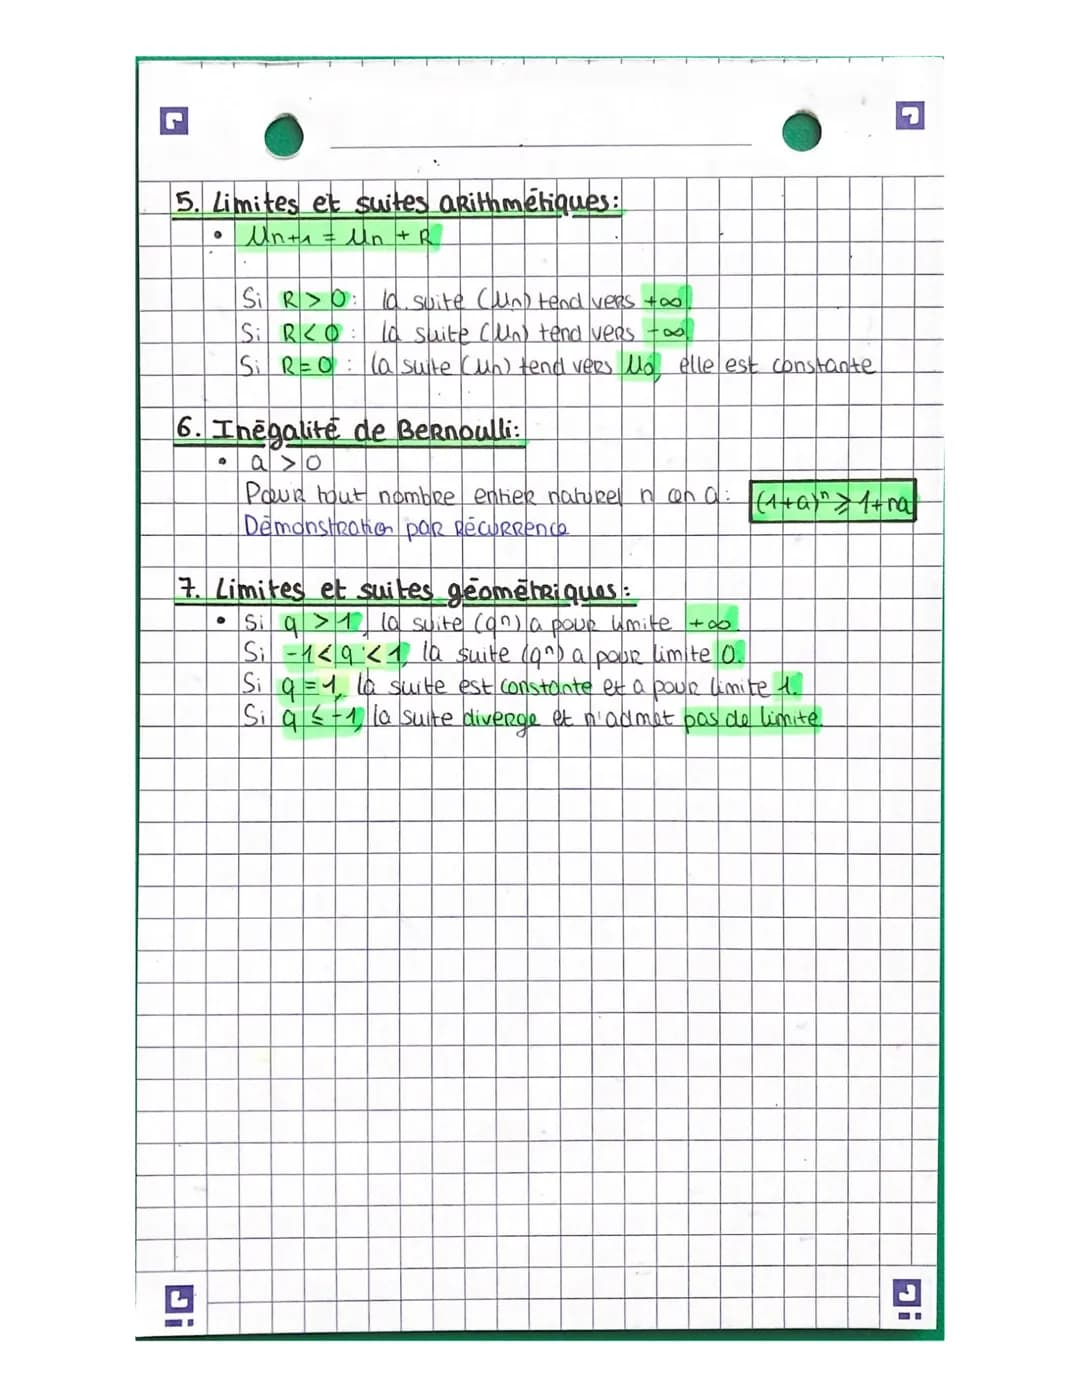 5. Limites et suites arithmétiques:
• Un+1 = Un + R
Si R > 0 : la suite (Un) tend vers +∞
Si R < 0 : la suite (Un) tend vers -∞
Si R = 0 : la suite (Un) tend vers U0, elle est constante
6. Inégalité de Bernoulli:
• a > 0
Pour tout nombre entier naturel n on a: (1+a)ⁿ ≥ 1+na
Démonstration par récurrence
7. Limites et suites géométriques:
• Si q > 1, la suite (qⁿ) a pour limite +∞.
Si -1 < q < 1, la suite (qⁿ) a pour limite 0.
Si q = 1, la suite est constante et a pour limite 1.
Si q ≤ -1, la suite diverge et n'admet pas de limite.